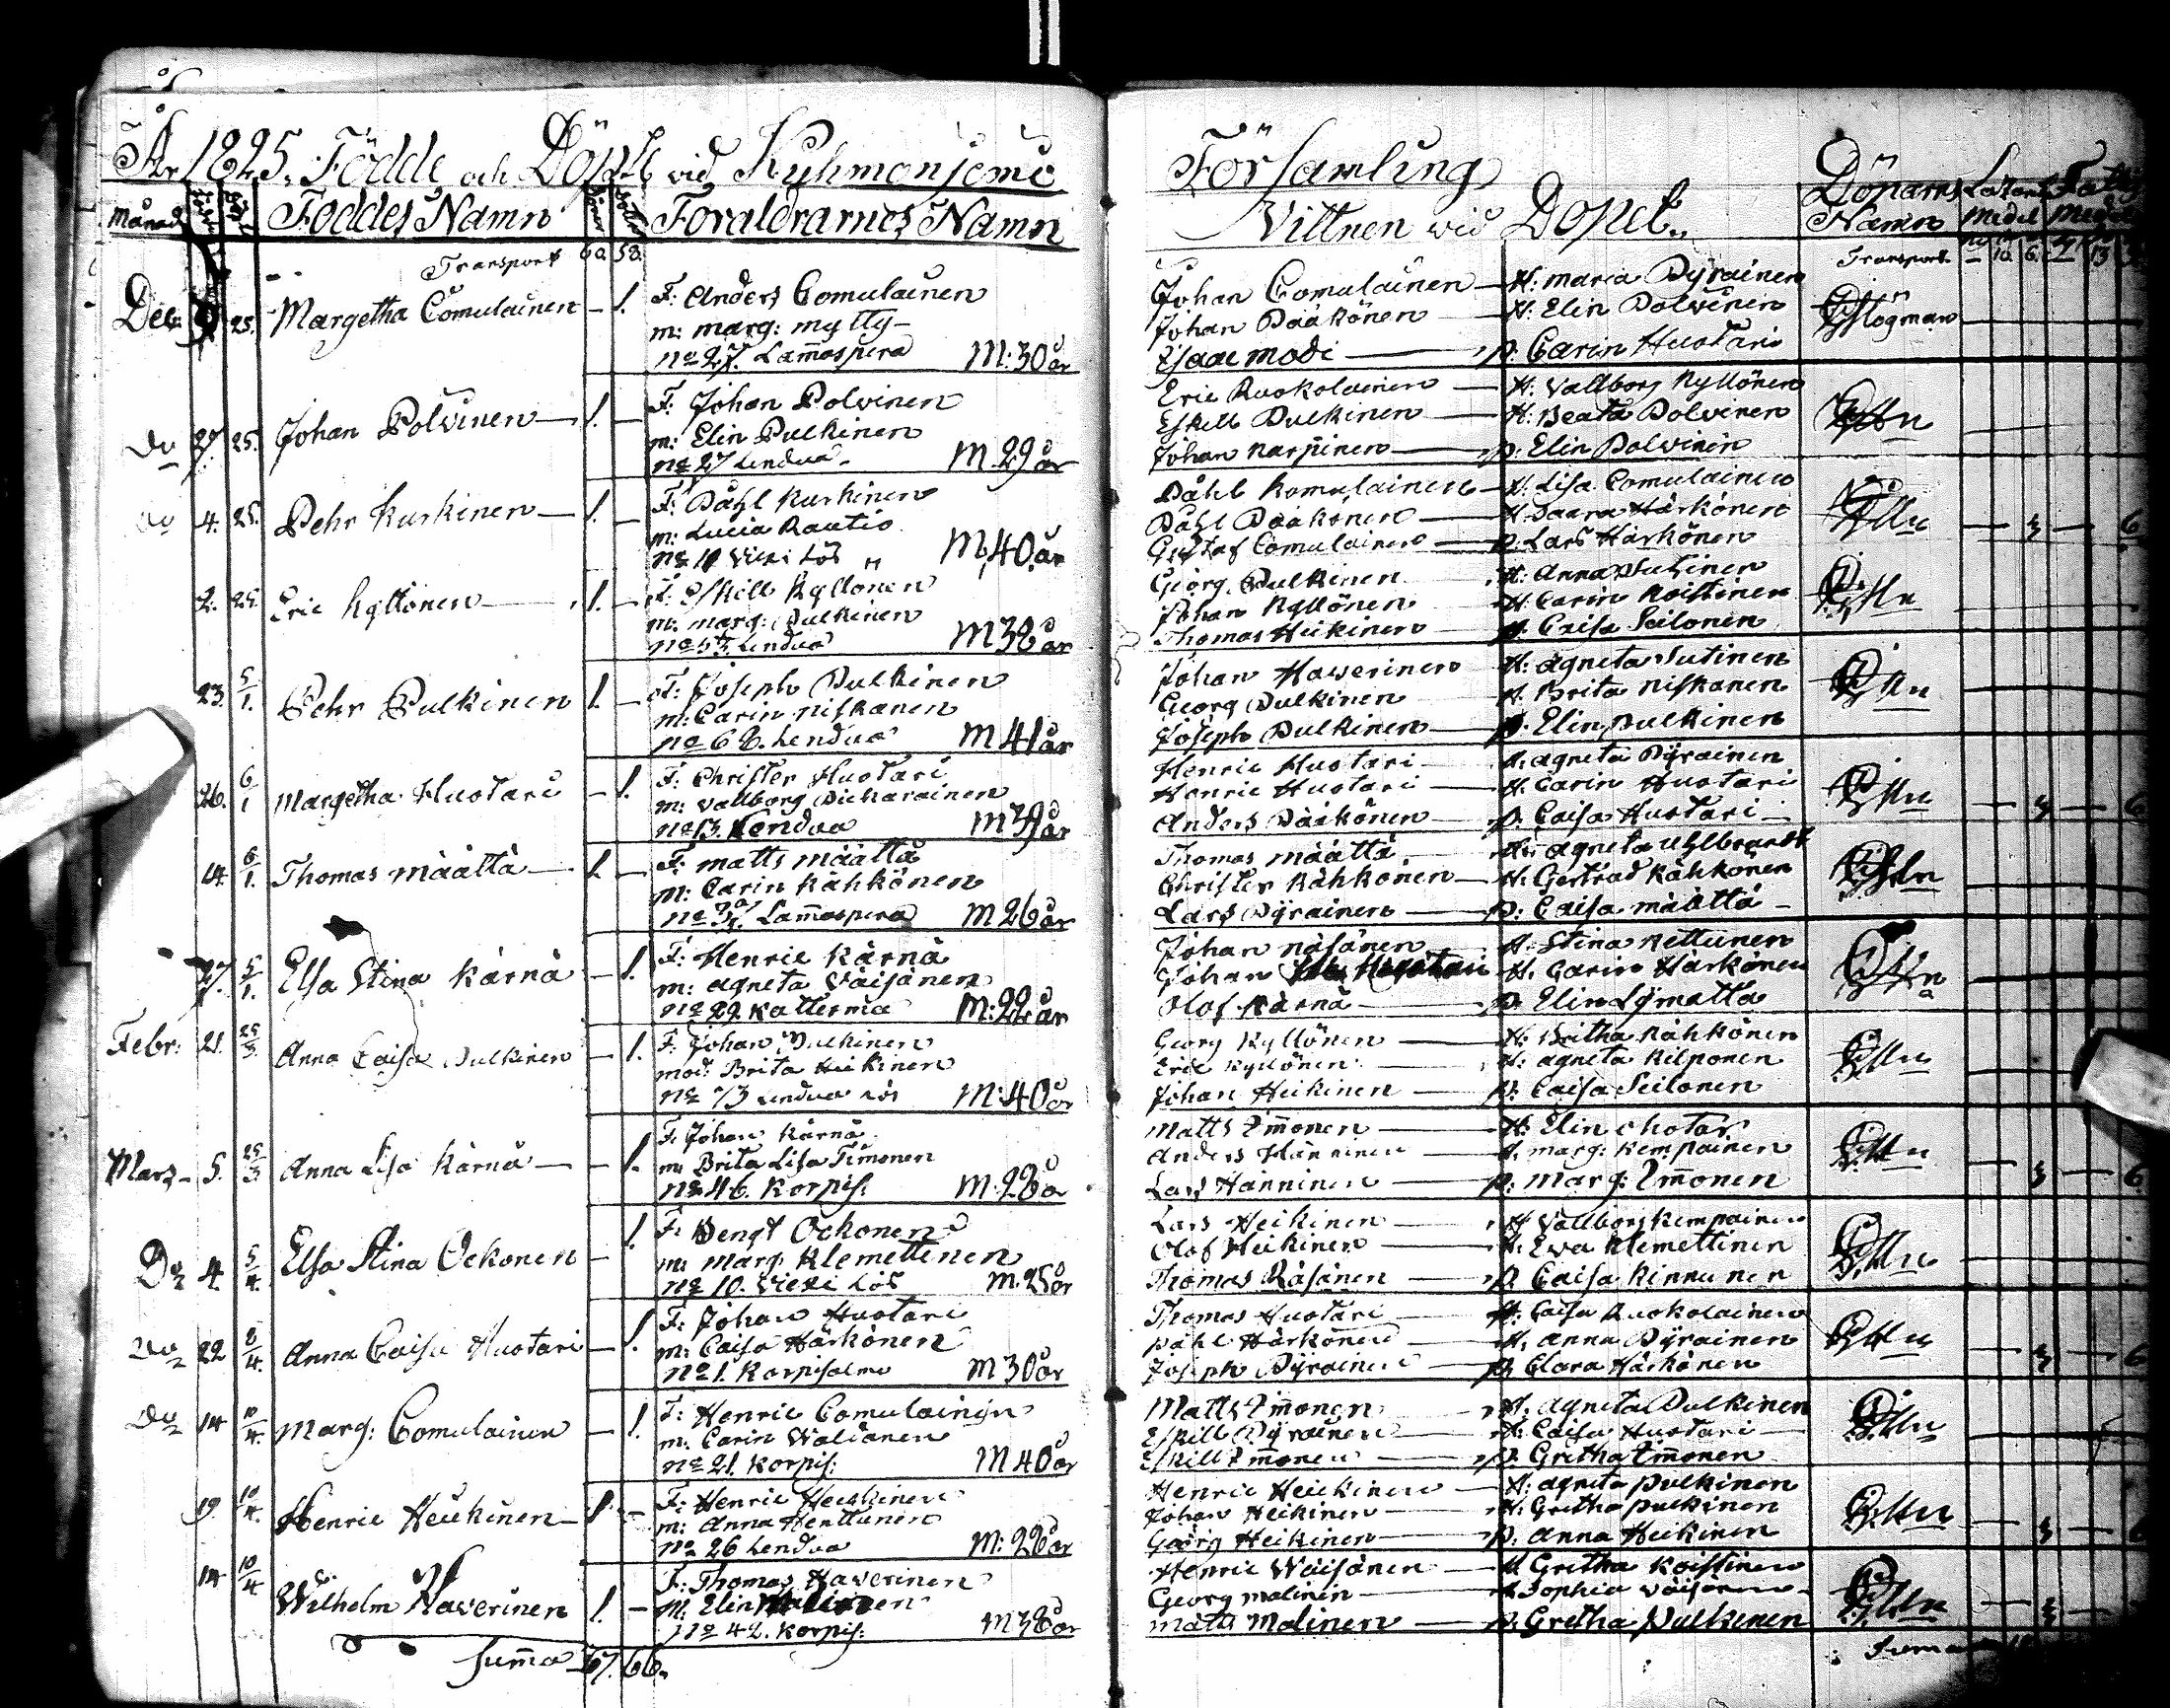 År 1825. Födde och Döpte vid Kuhmoniemi Församling
Månad Föddes Namn Föräldrarnes Namn Vittnen vid Dopet. Döparns Namn Medel
Transport 60. 58. Transport 10. 6. 13
Dec: 25. Margetha Comulainen — 1. F: Anders Comulainen Johan Comulainen — H: Maria Pyrainen
m: marg: mytty Johan Pääkönen — H: Elin Polvinen Högman
No 27. Lam̄aspera M: 30 år Isaac Modi — p: Carin Huotari
Do 27. 25. Johan Polvinen — 1. — F: Johan Polvinen Eric Ruokolainen — H: Vallborg Kyllönen
m: Elin Pulkinen Eskill Pulkinen — H: Beata Polvinen
No 27 Lendua M. 29 år Johan Karpinen — p: Elin Polvinen
Do 4. 25. Pehr Kurkinen — 1. — F: Påhl Kurkinen Påhl Komulainen — H: Lisa Comulainen
m: Lucia Rautio Påhl Pääkönen — H: Saara Härkönen
No 10 Viexi Lös M. 40 år Gustaf Comulainen — p: Lars Härkönen — 3 — 6
2. 25. Eric Kyllönen — 1. — F: Eskill Kyllönen Georg Pulkinen H: Anna Sutinen
m: marg: Pulkinen Johan Kyllönen H: Carin Koistinen
No 53 Lendua M 38 år Thomas Heikinen — p: Caisa Seilonen
23. 5/1. Pehr Pulkinen 1. — F: Joseph Pulkinen Johan Haverinen H: Agneta Sutinen
m: Carin Niskanen Georg Pulkinen H: Brita Niskanen
No 68. Lendua M 41 år Joseph Pulkinen — p: Elin Pulkinen
26. 6/1 Margetha Huotari — 1. F: Christer Huotari Henric Huotari — H: Agneta Pyrainen
m: Vallborg Pickarainen Henric Huotari — H: Carin Huotari
No 13. Lendua M 39 år Anders Pääkönen — p: Caisa Huotari — 3 — 6
14. 6/1. Thomas Määttä — 1 — F: Matts Määttä Thomas Määttä — H: Agneta Uhlbrandt
m: Carin Kähkönen Christer Kähkönen — H: Gertrud Kähkönen
Lam̄aspera M 26 år Lars Pyrainen — p: Caisa Määttä
27. 5/1. Elsa Stina Kärnä — 1. F: Henric Kärnä Johan Räsänen — H: Stina Kettunen
m: Agneta Väisänen Johan — H: Carin Härkönen
No 29 Katterma M: 22 år Olof Kärnä — p: Elin Lymatta
Febr: 21. 25/3. Anna Caisa Pulkinen — 1. F: Johan Pulkinen Georg Kyllönen — H: Britha Kähkönen
mod: Brita Heikinen Eric Kyllönen — H: Agneta Kilponen
No 73 Lendua Lös M: 40 år Johan Heikinen — p: Caisa Seilonen
Mars 5. 25/3. Anna Lisa Kärnä — 1. F: Johan Kärnä Matts Im̄onen — H: Elin
m: Brita Lisa Timonen Anders Hänninen — H: marg: Kempainen
No 46. Korpis: M: 28 år Lars Hänninen — p: Marg: Im̄onen — 3 — 6
Do 4. 5/4. Elsa Stina Ockonen — 1. F: Bengt Ockonen Lars Heikinen — H: Vallborg Kempainen
m: marg: Klemettinen Olof Heikinen — H: Eva Klemettinen
No 10. Viexi Lös M. 25 år Thomas Räsänen — p: Caisa Kinnunen
Do 22 8/4. Anna Caisa Huotari — 1. F: Johan Huotari Thomas Huotari — H: Caisa Ruokolainen
m: Caisa Härkönen Påhl Härkönen — H: Anna Pyrainen
No 1. Korpisalmi M 30 år Joseph Pyrainen — p: Clara Härkönen — 3 — 6
Do 14 10/4. Marg: Comulainen — 1. F: Henric Comulainen Matts Im̄onen H: Agneta Pulkinen
m: Carin Valianen Eskill Pyrainen — H: Caisa Huotari
No 21. Korpis: M 40 år Eskill Im̄onen — p: Gretha Im̄onen
19. 10/4. Henric Heikinen — 1. — F: Henric Heikinen Henric Heikinen — H: Agneta Pulkinen
m: Anna Henttunen Johan Heikinen — H: Gretha Pulkinen
No 26 Lendua M: 28 år Georg Heikinen — p: Anna Heikinen — 3 — 6
14 10/4 Wilhelm Haverinen 1. — F: Thomas Haverinen Henric Waisänen — H Gretha Koistinen
M: Elin Georg Malinin — H Sophia Väisänen
No 42. Korpis: M 38 år Matts Malinen — p: Gretha Pulkinen — 3
Sum̄a 67. 66. Sum̄a